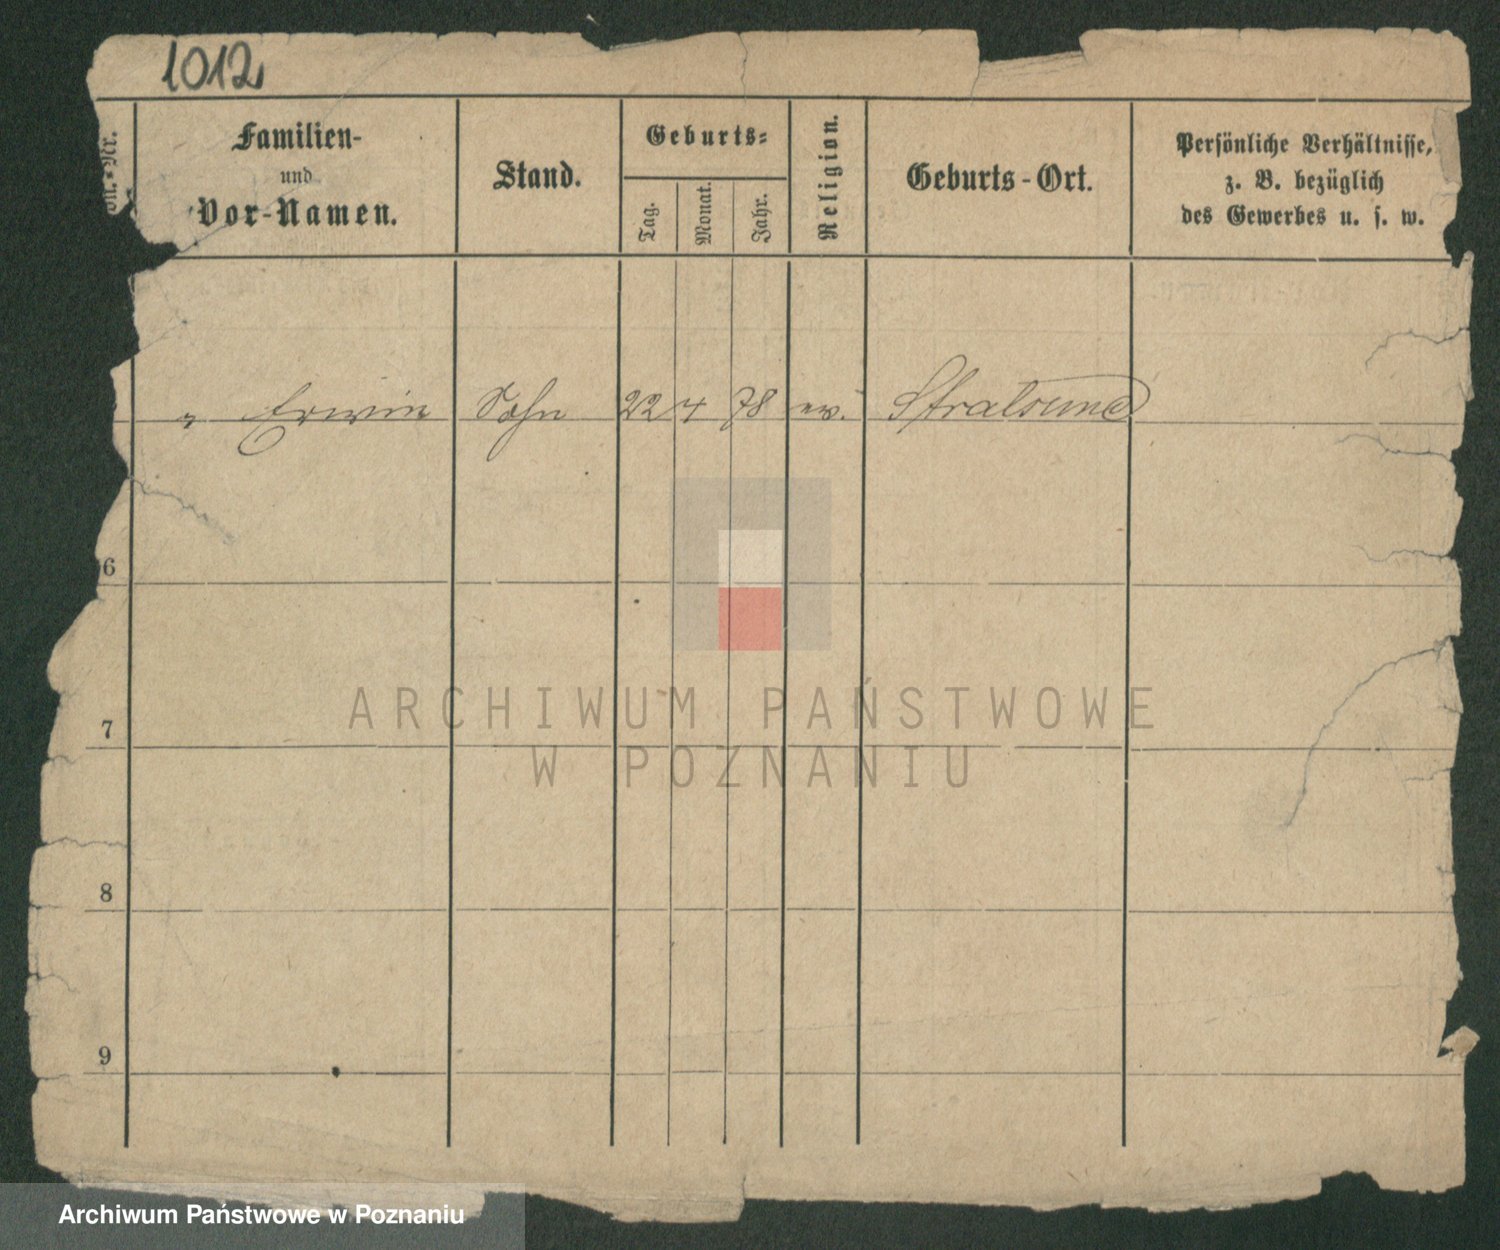 1012
Familien-
und
Vor-Namen.
Stand.
Geburts-
Tag.
Monat.
Jahr.
Religion.
Geburts-Ort.
Persönliche Verhältnisse,
z. B. bezüglich
des Gewerbes u. s. w.
" Erwin Sohn 22 4 78 ev. Stralsund
6
7
8
9
ARCHIWUM PAŃSTWOWE
W POZNANIU
Archiwum Państwowe w Poznaniu